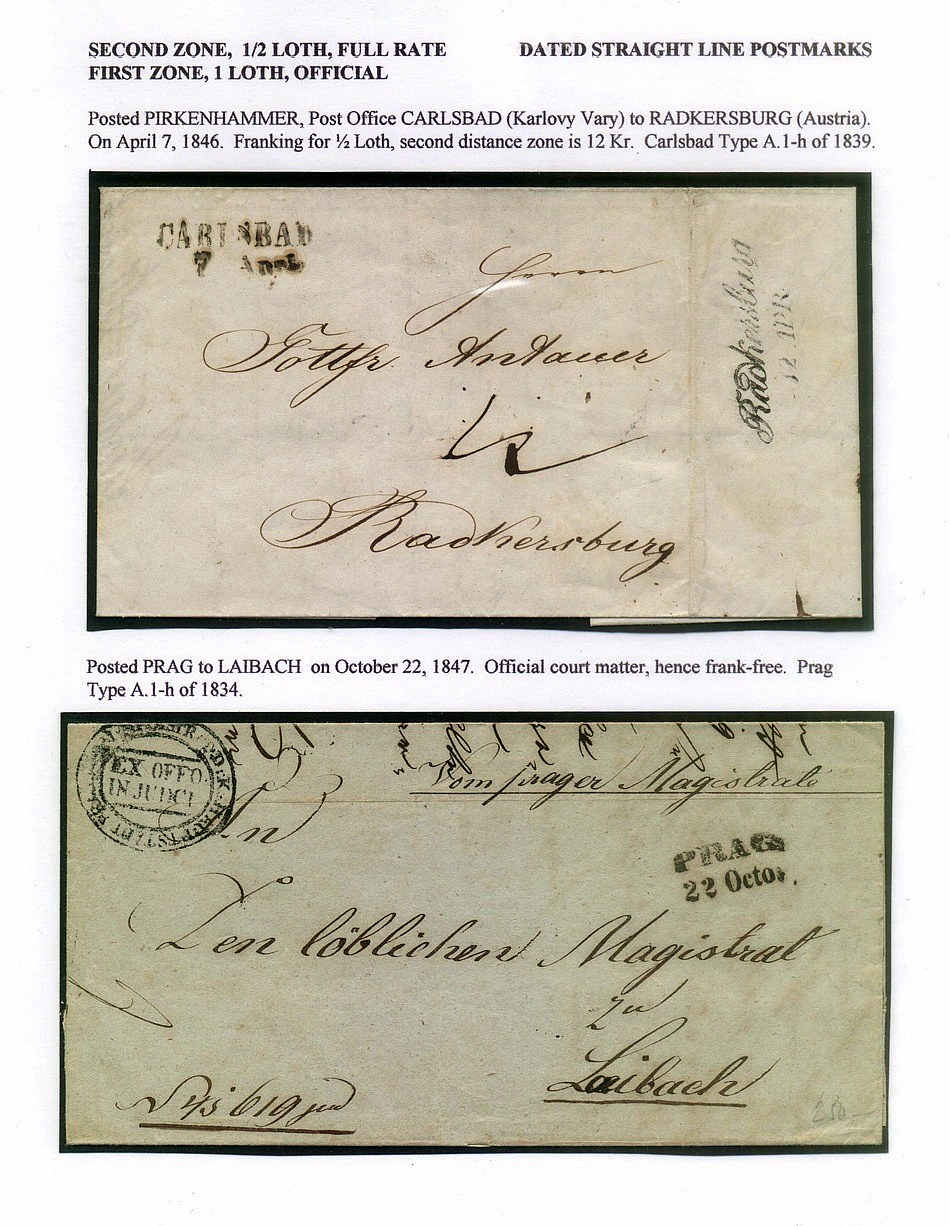 SECOND ZONE, 1/2 LOTH, FULL RATE
DATED STRAIGHT LINE POSTMARKS
FIRST ZONE, 1 LOTH, OFFICIAL
Posted PIRKENHAMMER, Post Office CARLSBAD (Karlovy Vary) to RADKERSBURG (Austria).
On April 7, 1846. Franking for ½ Loth, second distance zone is 12 Kr. Carlsbad Type A.1-h of 1839.
CARLSBAD
7 Apri.
Herrn
Gottfr. Antauer
12
Radkersburg
Radkersburg
12 APR.
Posted PRAG to LAIBACH on October 22, 1847. Official court matter, hence frank-free. Prag
Type A.1-h of 1834.
EX OFFO.
IN JUDCI
Vom prager Magistrate
An
PRAG
22 Octo.
Den löblichen Magistrat
zu
Laibach
250.-